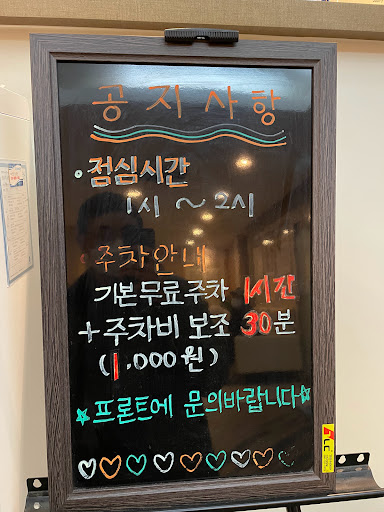 공지사항
• 점심시간
1시 ~ 2시
주차안내
기본 무료 주차 1시간
+ 주차비 보조 30분
(1,000원)
★ 프론트에 문의바랍니다 ★
♡♡♡♡♡♡♡♡♡